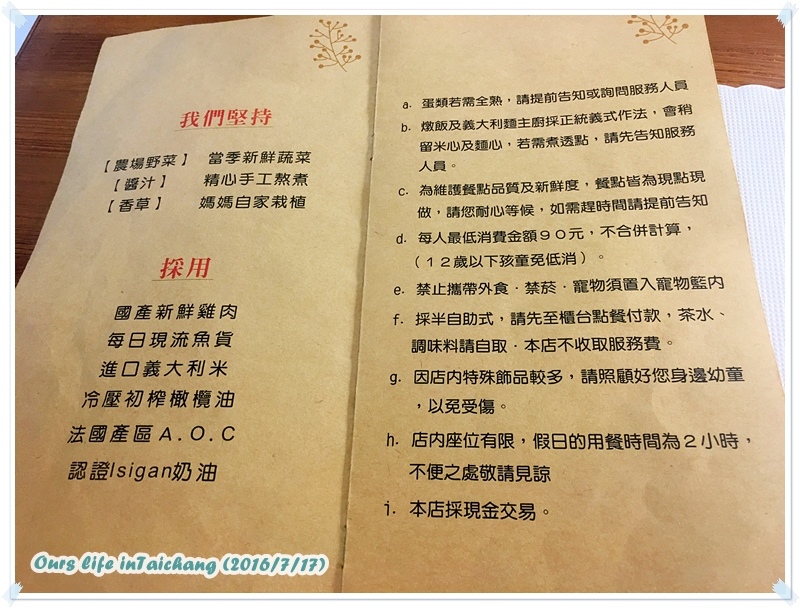 我們堅持
【農場野菜】 當季新鮮蔬菜
【醬汁】 精心手工熬煮
【香草】 媽媽自家栽植
採用
國產新鮮雞肉
每日現流魚貨
進口義大利米
冷壓初榨橄欖油
法國產區A.O.C
認證Isigan奶油
a. 蛋類若需全熟，請提前告知或詢問服務人員
b. 燉飯及義大利麵主廚採正統義式作法，會稍
留米心及麵心，若需煮透點，請先告知服務
人員。
c. 為維護餐點品質及新鮮度，餐點皆為現點現
做，請您耐心等候，如需趕時間請提前告知
d. 每人最低消費金額９０元，不合併計算，
（１２歲以下孩童免低消）。
e. 禁止攜帶外食．禁菸．寵物須置入寵物籃內
f. 採半自助式，請先至櫃台點餐付款，茶水、
調味料請自取．本店不收取服務費。
g. 因店內特殊飾品較多，請照顧好您身邊幼童
，以免受傷。
h. 店內座位有限，假日的用餐時間為２小時，
不便之處敬請見諒
i. 本店採現金交易。
Ours life inTaichang (2016/7/17)